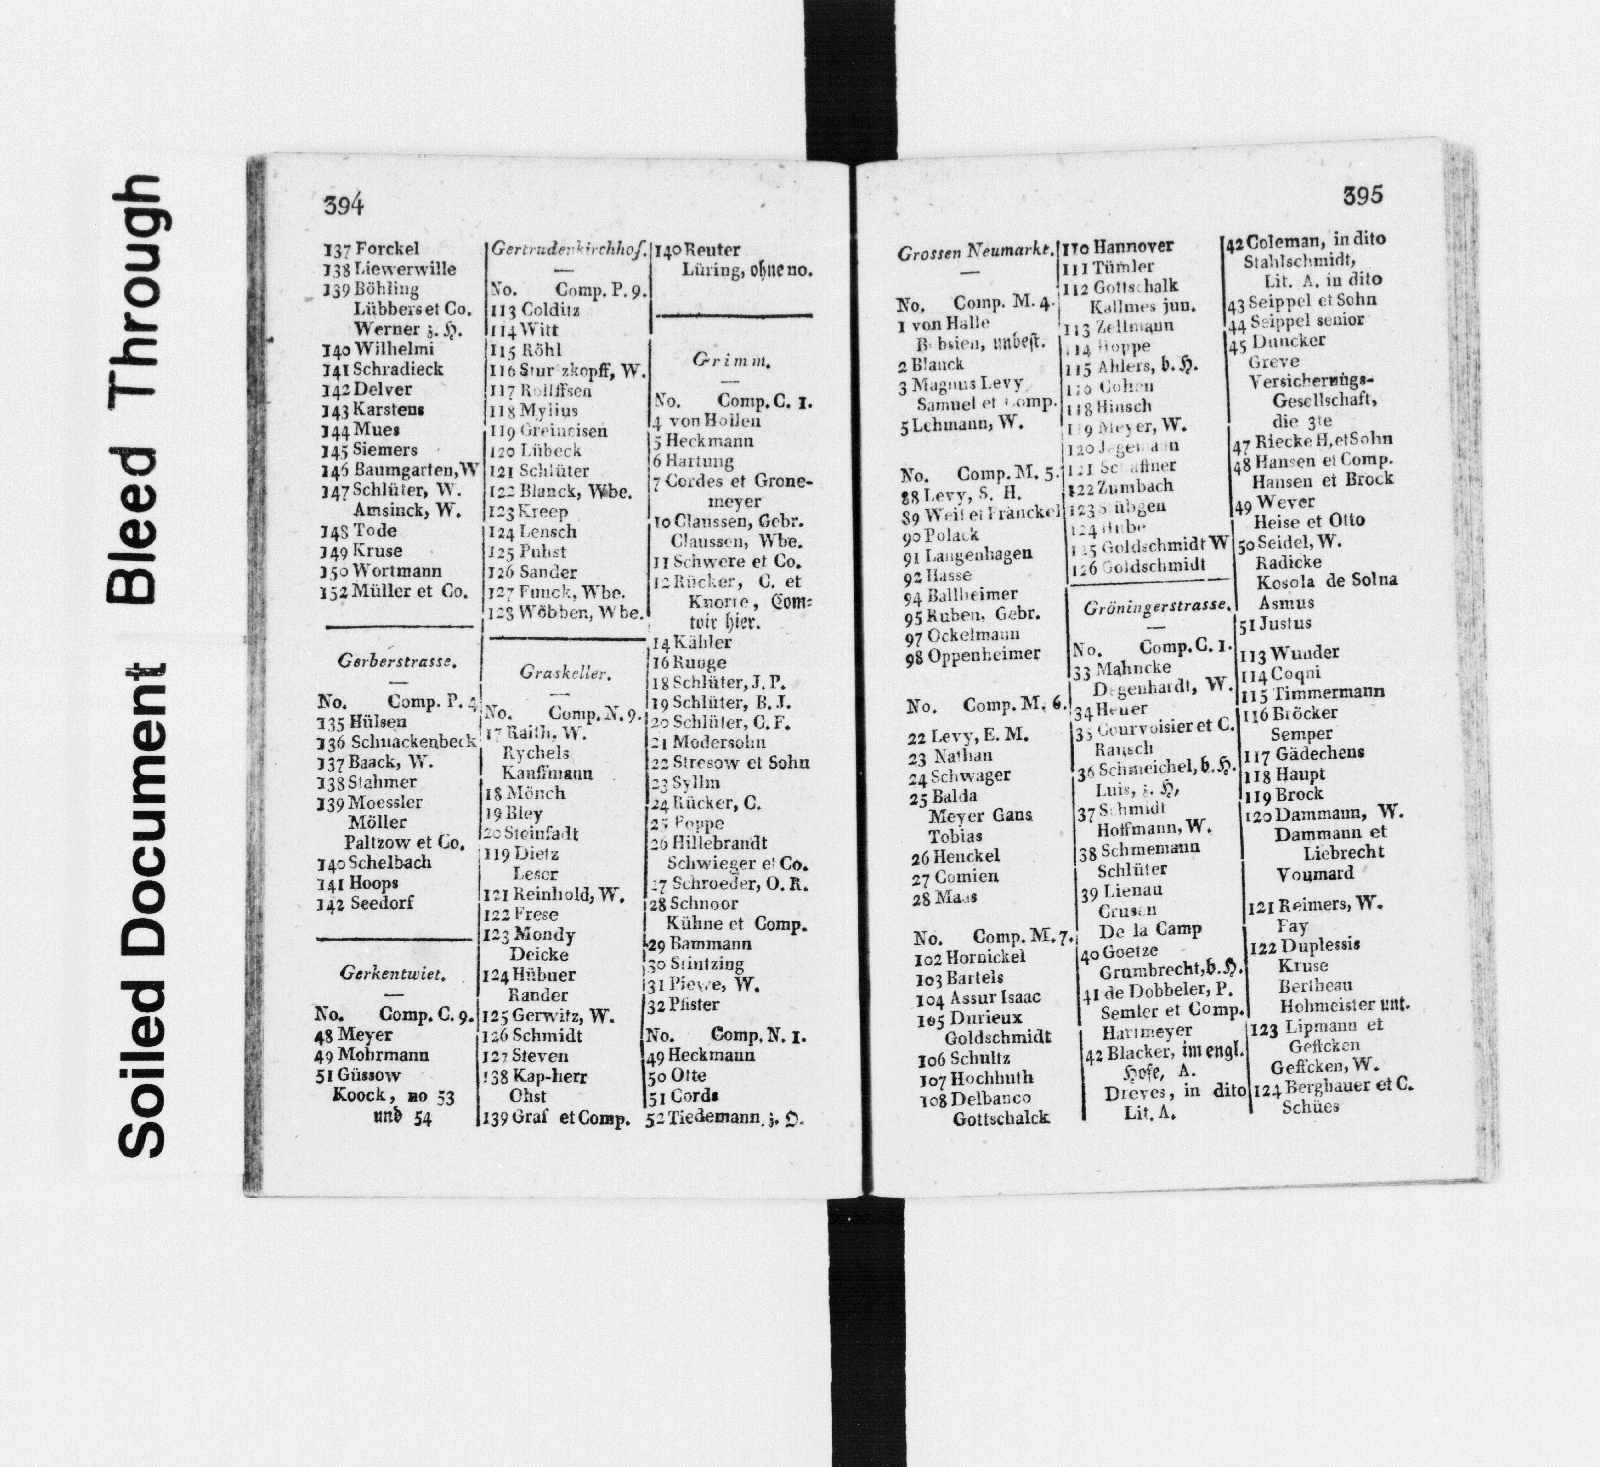 Soiled Document Bleed Through
394
137 Forckel
138 Liewerwille
139 Böhling
Lübbers et Co.
Werner z. H.
140 Wilhelmi
141 Schradieck
142 Delver
143 Karstens
144 Mues
145 Siemers
146 Baumgarten, W
147 Schlüter, W.
Amsinck, W.
148 Tode
149 Kruse
150 Wortmann
152 Müller et Co.
Gerberstrasse.
No. Comp. P. 4
135 Hülsen
136 Schnackenbeck
137 Baack, W.
138 Stahmer
139 Moessler
Möller
Paltzow et Co.
140 Schelbach
141 Hoops
142 Seedorf
Gerkentwiet.
No. Comp. C. 9.
48 Meyer
49 Mohrmann
51 Güssow
Koock, no 53
und 54
Gertrudenkirchhof.
No. Comp. P. 9.
113 Colditz
114 Witt
115 Röhl
116 Sturtzkopff, W.
117 Rolffsen
118 Mylius
119 Greineisen
120 Lübeck
121 Schlüter
122 Blanck, Wbe.
123 Kreep
124 Lensch
125 Pubst
126 Sander
127 Funck, Wbe.
128 Wöbben, Wbe.
Graskeller.
No. Comp. N. 9.
17 Raith, W.
Rychels
Kauffmann
18 Mönch
19 Bley
20 Steinfadt
119 Dietz
Leser
121 Reinhold, W.
122 Frese
123 Mondy
Deicke
124 Hübner
Rander
125 Gerwitz, W.
126 Schmidt
127 Steven
138 Kap-herr
Ohst
139 Graf et Comp.
140 Reuter
Lüring, ohne no.
Grimm.
No. Comp. C. 1.
4 von Hollen
5 Heckmann
6 Hartung
7 Cordes et Grone-
meyer
10 Claussen, Gebr.
Claussen, Wbe.
11 Schwere et Co.
12 Rücker, C. et
Knorre, Com-
toir hier.
14 Kähler
16 Runge
18 Schlüter, J. P.
19 Schlüter, B. J.
20 Schlüter, C. F.
21 Modersohn
22 Stresow et Sohn
23 Syllm
24 Rücker, C.
25 Poppe
26 Hillebrandt
Schwieger et Co.
27 Schroeder, O. R.
28 Schnoor
Kühne et Comp.
29 Bammann
30 Stintzing
31 Piewe, W.
32 Pfister
No. Comp. N. 1.
49 Heckmann
50 Otte
51 Cords
52 Tiedemann, z. H.
395
Grossen Neumarkt.
No. Comp. M. 4.
1 von Halle
unbest.
2 Blanck
3 Magnus Levy
Samuel et Comp.
5 Lehmann, W.
No. Comp. M. 5.
88 Levy, S. H.
89 Weil et Fränckel
90 Polack
91 Langenhagen
92 Hasse
94 Ballheimer
95 Ruben, Gebr.
97 Ockelmann
98 Oppenheimer
No. Comp. M. 6.
22 Levy, E. M.
23 Nathan
24 Schwager
25 Balda
Meyer Gans
Tobias
26 Henckel
27 Comien
28 Maas
No. Comp. M. 7.
102 Hornickel
103 Bartels
104 Assur Isaac
105 Durieux
Goldschmidt
106 Schultz
107 Hochhuth
108 Delbanco
Gottschalck
110 Hannover
111 Tümler
112 Gottschalk
Kallmes jun.
113 Zellmann
114 Hoppe
115 Ahlers, b. H.
116 Cohen
118 Hinsch
119 Meyer, W.
120 Jegemann
121 Schaffner
122 Zumbach
123 Stübgen
124 Hube
125 Goldschmidt W
126 Goldschmidt
Gröningerstrasse.
No. Comp. C. 1.
33 Mahncke
Degenhardt, W.
34 Heuer
35 Courvoisier et C.
Rausch
36 Schmeichel, b. H.
Luis, z. H,
37 Schmidt
Hoffmann, W.
38 Schmemann
Schlüter
39 Lienau
Crusen
De la Camp
40 Goetze
Grumbrecht, b. H.
41 de Dobbeler, P.
Semler et Comp.
Hartmeyer
42 Blacker, im engl.
Hofe, A.
Dreves, in dito
Lit. A.
42 Coleman, in dito
Stahlschmidt,
Lit. A. in dito
43 Seippel et Sohn
44 Seippel senior
45 Duncker
Greve
Versicherungs-
Gesellschaft,
die 3te
47 Riecke H, et Sohn
48 Hansen et Comp.
Hansen et Brock
49 Wever
Heise et Otto
50 Seidel, W.
Radicke
Kosola de Solna
Asmus
51 Justus
113 Wunder
114 Coqni
115 Timmermann
116 Bröcker
Semper
117 Gädechens
118 Haupt
119 Brock
120 Dammann, W.
Dammann et
Liebrecht
Voumard
121 Reimers, W.
Fay
122 Duplessis
Kruse
Bertheau
Hohmeister unt.
123 Lipmann et
Geffcken
Geffcken, W.
124 Berghauer et C.
Schües